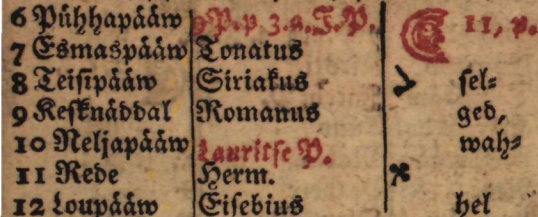 6 Pühhapääw 9 P. p. 3. a. J. P. 11, p.
7 Esmaspääw Tonatus
8 Teisipääw Siriakus sel-
9 Kesknäddal Romanus ged,
10 Neljapääw Lauritse P. wah-
11 Rede Herm.
12 Loupääw Eisebius hel